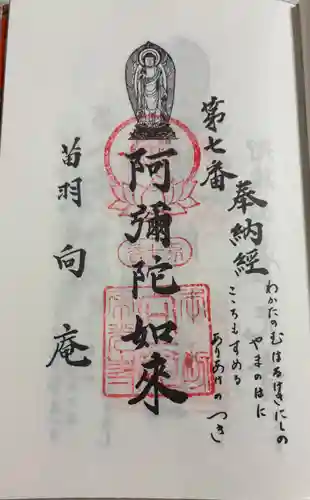 奉納経
わかたのむはるけきにしの
やまのはに
こころもすめる
ありあけのつき
第七番
阿彌陀如來
苗羽
向庵